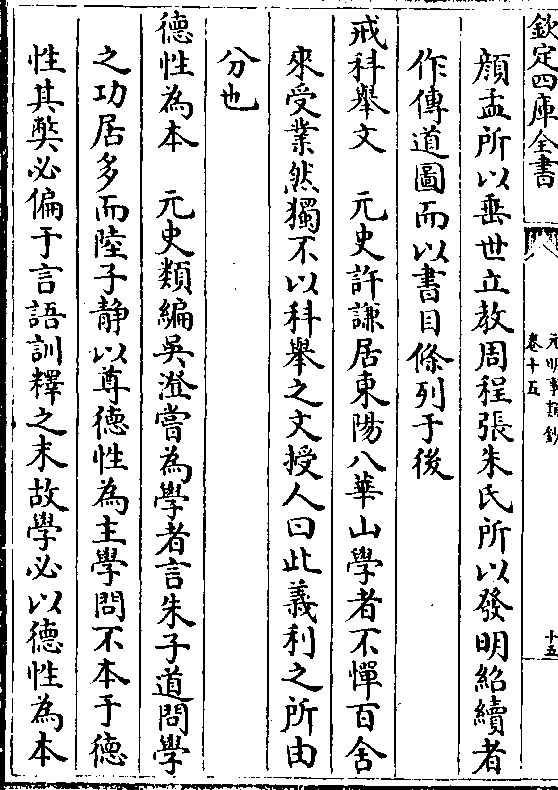 欽定四庫全書
元明事類鈔
卷十五
十五
顔孟所以垂世立教周程張朱氏所以發明紹續者
作傳道圖而以書目條列于後
戒科舉文　元史許謙居東陽八華山學者不憚百舍
來受業然獨不以科舉之文授人曰此義利之所由
分也
德性為本　元史類編吳澄嘗為學者言朱子道問學
之功居多而陸子靜以尊德性為主學問不本于德
性其弊必偏于言語訓釋之末故學必以德性為本